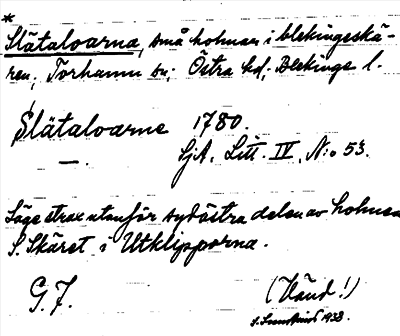 *
Slätaloarna, små holmar i blekingeskä-
ren, Torhamn sn, Östra hd, Blekinge l.
Slätaloarne 1780.
—. SjA. Litt. IV, No 53.
Läge strax utanför sydöstra delen av holmen
S. Skäret i Utklipporna.
G. F. (Händ!)
1933.